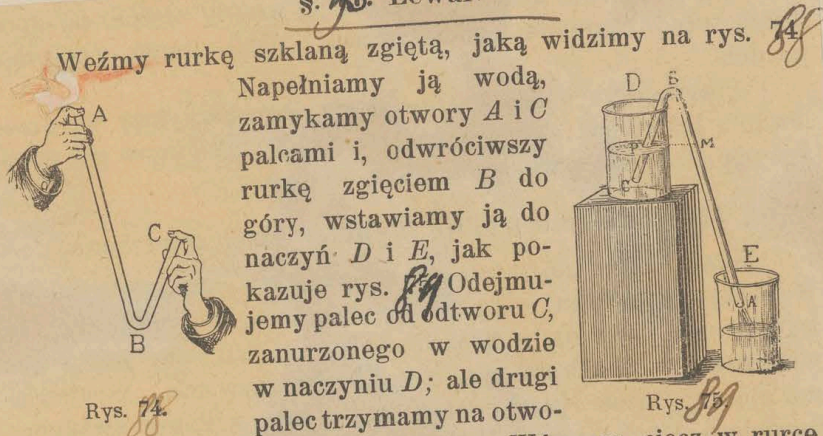 Weźmy rurkę szklaną zgiętą, jaką widzimy na rys. 74. 88
Napełniamy ją wodą,
zamykamy otwory A i C
palcami i, odwróciwszy
rurkę zgięciem B do
góry, wstawiamy ją do
naczyń D i E, jak po-
kazuje rys. 89 Odejmu-
jemy palec od odtworu C,
zanurzonego w wodzie
w naczyniu D; ale drugi
palec trzymamy na otwo-
A
C
B
Rys. 74. 88
D
B
P
M
C
E
A
Rys. 75. 89
w rurce